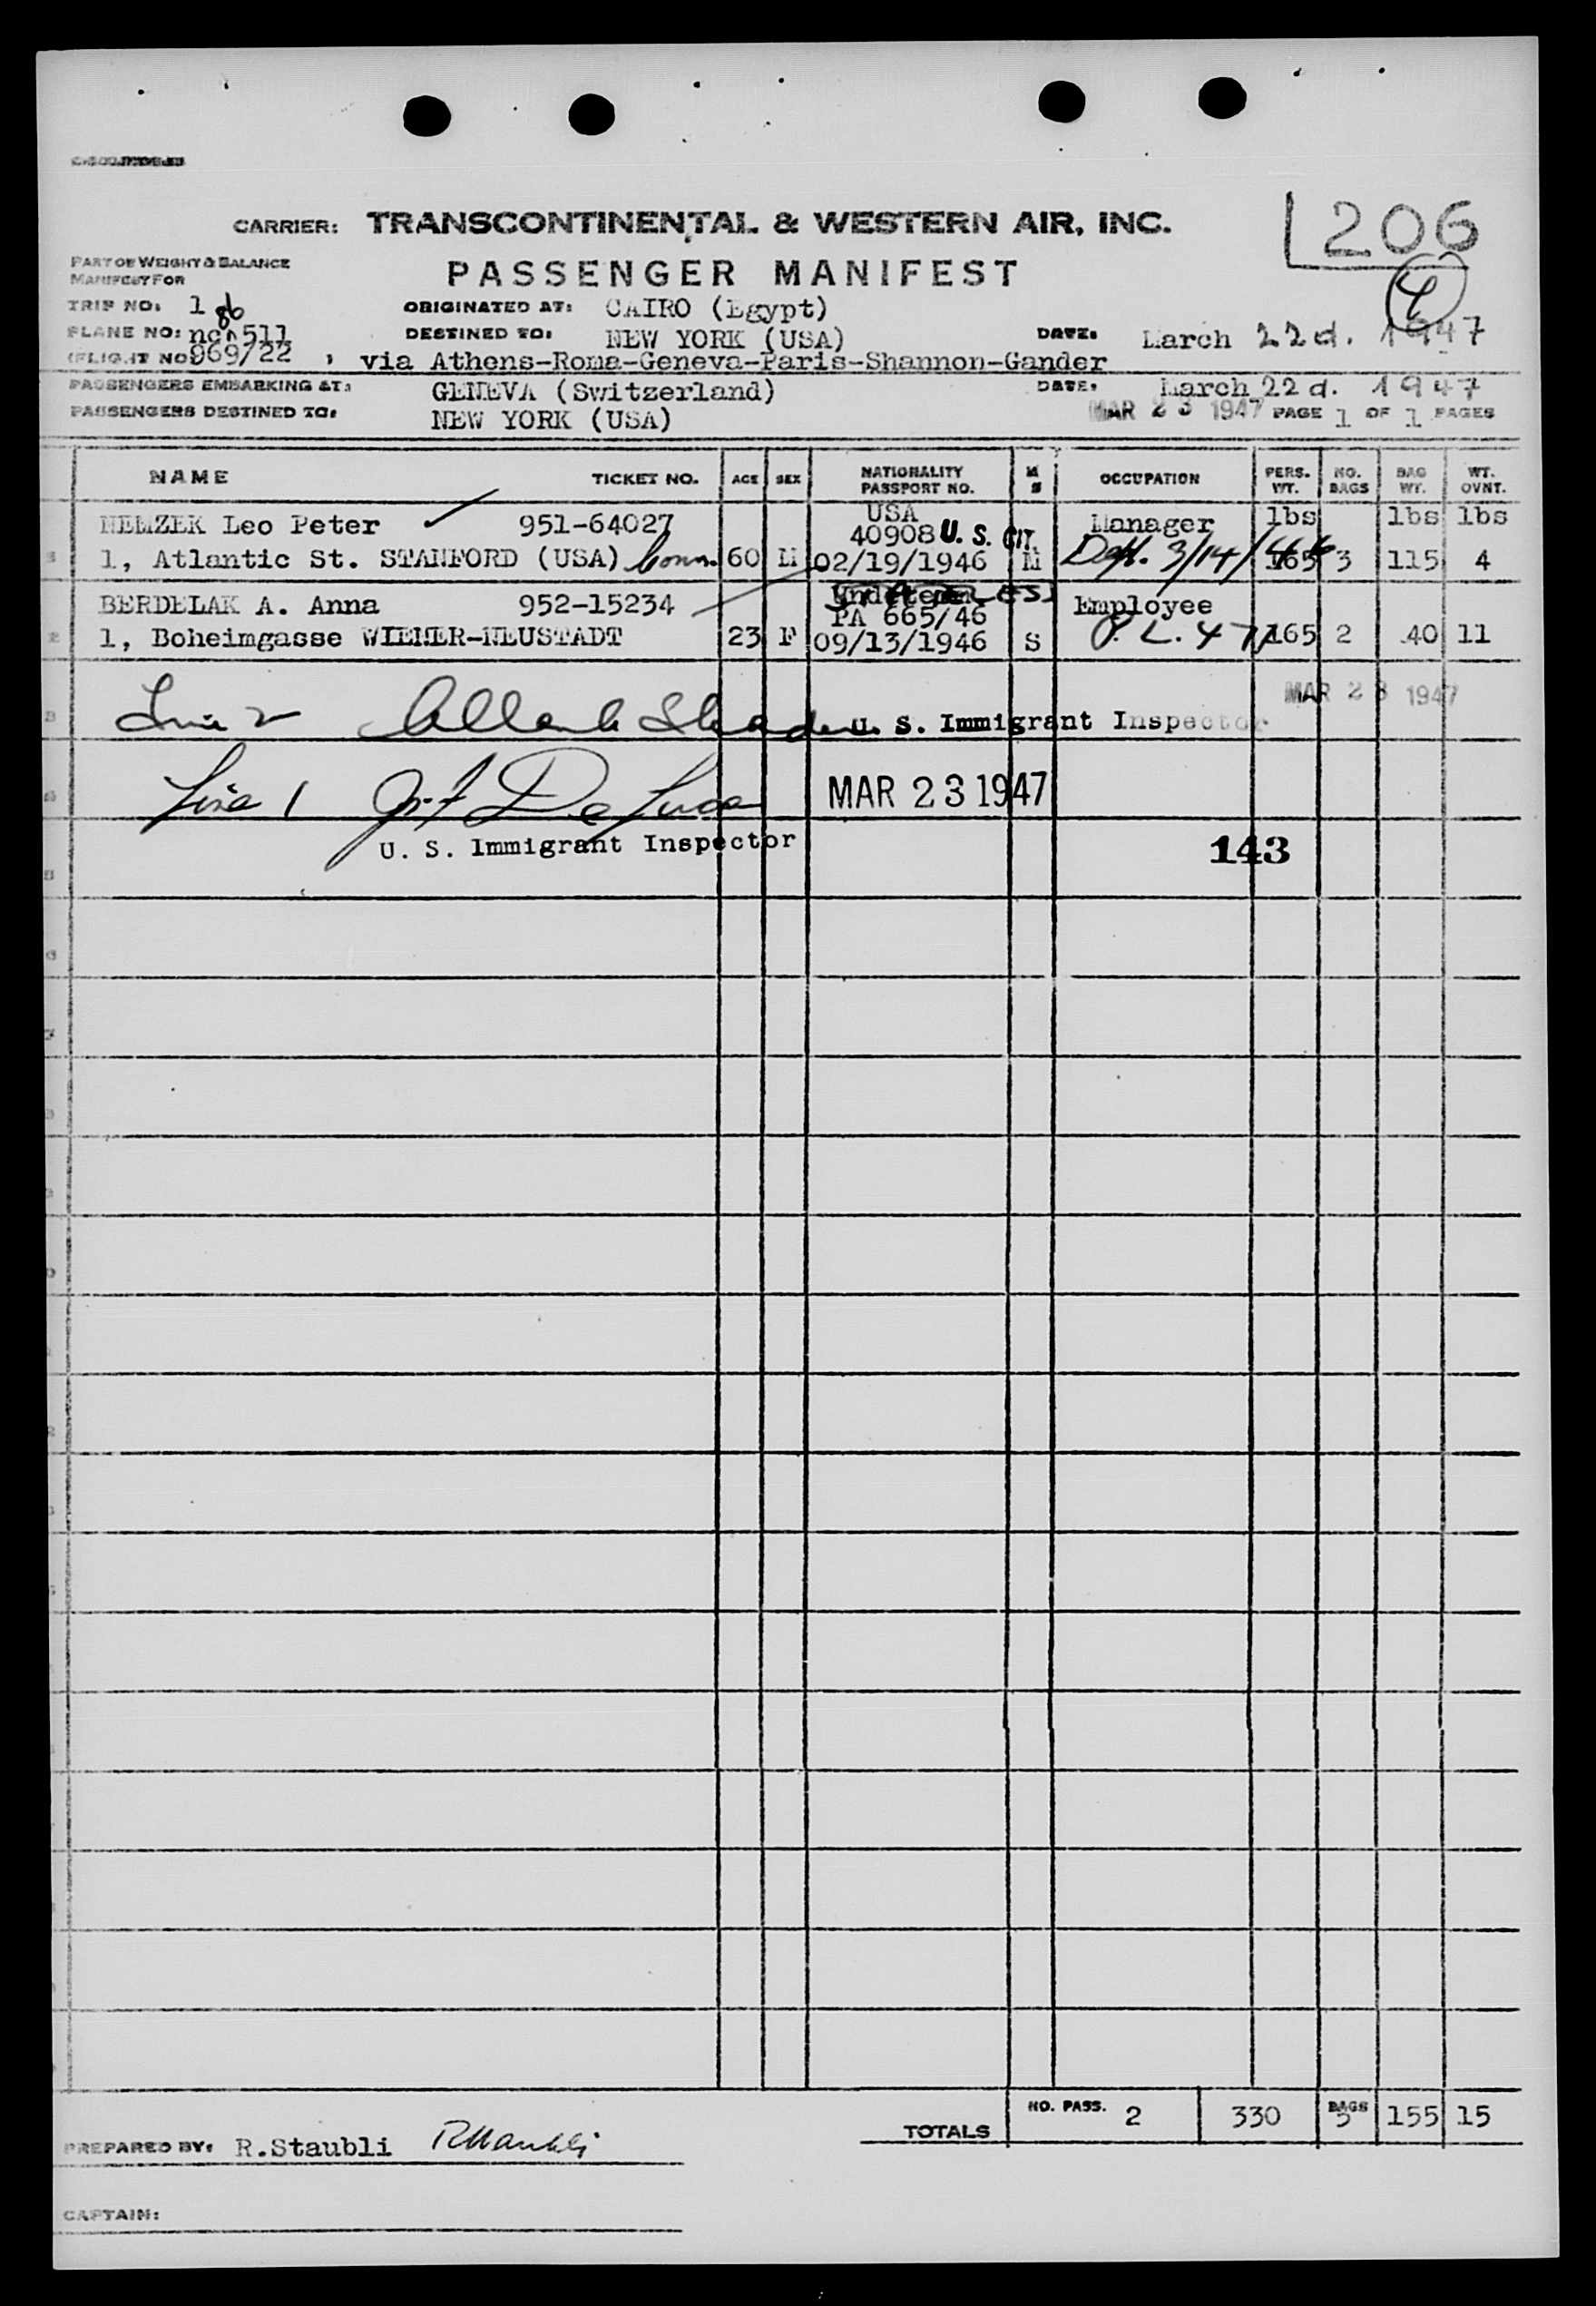 CARRIER: TRANSCONTINENTAL & WESTERN AIR, INC.
206
PART OF WEIGHT & BALANCE
MANIFEST FOR
PASSENGER MANIFEST
4
TRIP NO: 1
ORIGINATED AT: CAIRO (Egypt)
PLANE NO: 511
DESTINED TO: NEW YORK (USA)
DATE: March 22d. 1947
(FLIGHT NO 969/22 , via Athens-Roma-Geneva-Paris-Shannon-Gander
PASSENGERS EMBARKING AT: GENEVA (Switzerland)
DATE: March 22d. 1947
PASSENGERS DESTINED TO: NEW YORK (USA)
MAR 23 1947 PAGE 1 OF 1 PAGES
NAME TICKET NO. AGE SEX NATIONALITY PASSPORT NO. M S OCCUPATION PERS. WT. NO. BAGS BAG WT. WT. OVNT.
USA lbs lbs lbs
NEMZEK Leo Peter 951-64027 40908 U. S. CIT. Manager
1, Atlantic St. STANFORD (USA) Conn. 60 M 02/19/1946 M Dept. 3/14/46 165 3 115 4
STATELESS
BERDELAK A. Anna 952-15234 PA 665/46 Employee
1, Boheimgasse WIENER-NEUSTADT 23 F 09/13/1946 S P. L. 471 165 2 40 11
MAR 23 1947
Line 2 U. S. Immigrant Inspector
Line 1 De Luca MAR 23 1947
U. S. Immigrant Inspector
143
TOTALS NO. PASS. 2 330 BAGS 5 155 15
PREPARED BY: R.Staubli RStaubli
CAPTAIN: